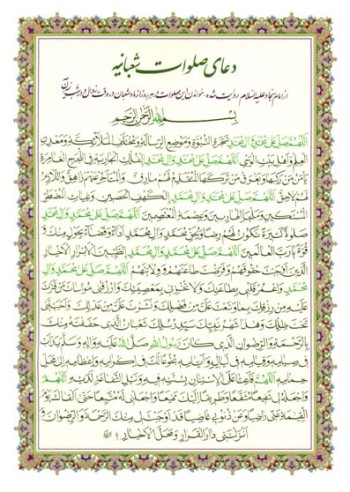 دعای صلوات شعبانیه
از امام سجاد علیه السلام روایت شده، خواندن این صلوات در هر روز از ماه شعبان در وقت زوال و در شب نیمه آن
بِسْمِ اللهِ الرَّحْمنِ الرَّحیمِ
اَللّهُمَّ صَلِّ عَلی مُحَمَّدٍ وَ الِ مُحَمَّدٍ شَجَرَةِ النُّبُوَّةِ وَ مَوْضِعِ الرِّسالَةِ وَ مُخْتَلَفِ الْمَلآئِکَةِ وَ مَعْدِنِ
الْعِلْمِ وَ اَهْلِ بَیْتِ الْوَحْیِ اَللّهُمَّ صَلِّ عَلی مُحَمَّدٍ وَ الِ مُحَمَّدٍ الْفُلْکِ الْجارِیَةِ فِی اللُّجَجِ الْغامِرَةِ
یَاْمَنُ مَنْ رَکِبَها وَ یَغْرَقُ مَنْ تَرَکَهَا الْمُتَقَدِّمُ لَهُمْ مارِقٌ وَ الْمُتَاَخِّرُ عَنْهُمْ زاهِقٌ وَ اللّازِمُ
لَهُمْ لاحِقٌ اَللّهُمَّ صَلِّ عَلی مُحَمَّدٍ وَ الِ مُحَمَّدٍ الْکَهْفِ الْحَصینِ وَ غِیاثِ الْمُضْطَرِّ
الْمُسْتَکینِ وَ مَلْجَاِ الْهارِبینَ وَ عِصْمَةِ الْمُعْتَصِمینَ اَللّهُمَّ صَلِّ عَلی مُحَمَّدٍ وَ الِ مُحَمَّدٍ
صَلوةً کَثیرَةً تَکُونُ لَهُمْ رِضًا وَ لِحَقِّ مُحَمَّدٍ وَ الِ مُحَمَّدٍ اَداءً وَ قَضاءً بِحَوْلٍ مِنْکَ وَ
قُوَّةٍ یا رَبَّ الْعالَمینَ اَللّهُمَّ صَلِّ عَلی مُحَمَّدٍ وَ الِ مُحَمَّدٍ الطَّیِّبینَ الْاَبْرارِ الْاَخْیارِ
الَّذینَ اَوْجَبْتَ حُقُوقَهُمْ وَ فَرَضْتَ طاعَتَهُمْ وَ وِلایَتَهُمْ اَللّهُمَّ صَلِّ عَلی مُحَمَّدٍ وَ الِ
مُحَمَّدٍ وَ اعْمُرْ قَلْبی بِطاعَتِکَ وَ لا تُخْزِنی بِمَعْصِیَتِکَ وَ ارْزُقْنی مُواساةَ مَنْ قَتَّرْتَ
عَلَیْهِ مِنْ رِزْقِکَ بِما وَسَّعْتَ عَلَیَّ مِنْ فَضْلِکَ وَ نَشَرْتَ عَلَیَّ مِنْ عَدْلِکَ وَ اَحْیَیْتَنی
تَحْتَ ظِلِّکَ وَ هذا شَهْرُ نَبِیِّکَ سَیِّدِ رُسُلِکَ شَعْبانُ الَّذی حَفَفْتَهُ مِنْکَ
بِالرَّحْمَةِ وَ الرِّضْوانِ الَّذی کانَ رَسُولُ اللهِ صَلَّی اللهُ عَلَیْهِ وَ الِهِ وَ سَلَّمَ یَدْاَبُ
فی صِیامِهِ وَ قِیامِهِ فی لَیالیهِ وَ اَیّامِهِ بُخُوعًا لَکَ فی اِکْرامِهِ وَ اِعْظامِهِ اِلی مَحَلِّ
حِمامِهِ اَللّهُمَّ فَاَعِنّا عَلَی الْاِسْتِنانِ بِسُنَّتِهِ فیهِ وَ نَیْلِ الشَّفاعَةِ لَدَیْهِ اَللّهُمَّ
وَ اجْعَلْهُ لی شَفیعًا مُشَفَّعًا وَ طَریقًا اِلَیْکَ مَهْیَعًا وَ اجْعَلْنی لَهُ مُتَّبِعًا حَتّی اَلْقاکَ یَوْمَ
الْقِیمَةِ عَنّی راضِیًا وَ عَنْ ذُنُوبی غاضِیًا قَدْ اَوْجَبْتَ لی مِنْکَ الرَّحْمَةَ وَ الرِّضْوانَ وَ
اَنْزَلْتَنی دارَ الْقَرارِ وَ مَحَلَّ الْاَخْیارِ